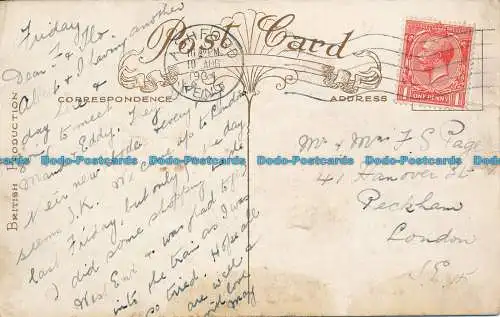 Post Card
BRITISH PRODUCTION
CORRESPONDENCE
ADDRESS
ASHFORD
10 AUG
KENT
ONE PENNY
Friday
Dear F & Flo.
I having another
day
to meet
Maud & Eddy. They
their new
seems O.K. We came up to London
last Friday, but only for the day
I did some shopping in the
West End & was glad to get
into the train as I was
so tired. Hope all
are well
with love
May
Mr & Mrs F S Page
41 Hanover St
Peckham
London
S.E.15
Dodo-Postcards Dodo-Postcards Dodo-Postcards Dodo-Postcards Dodo-Postcards